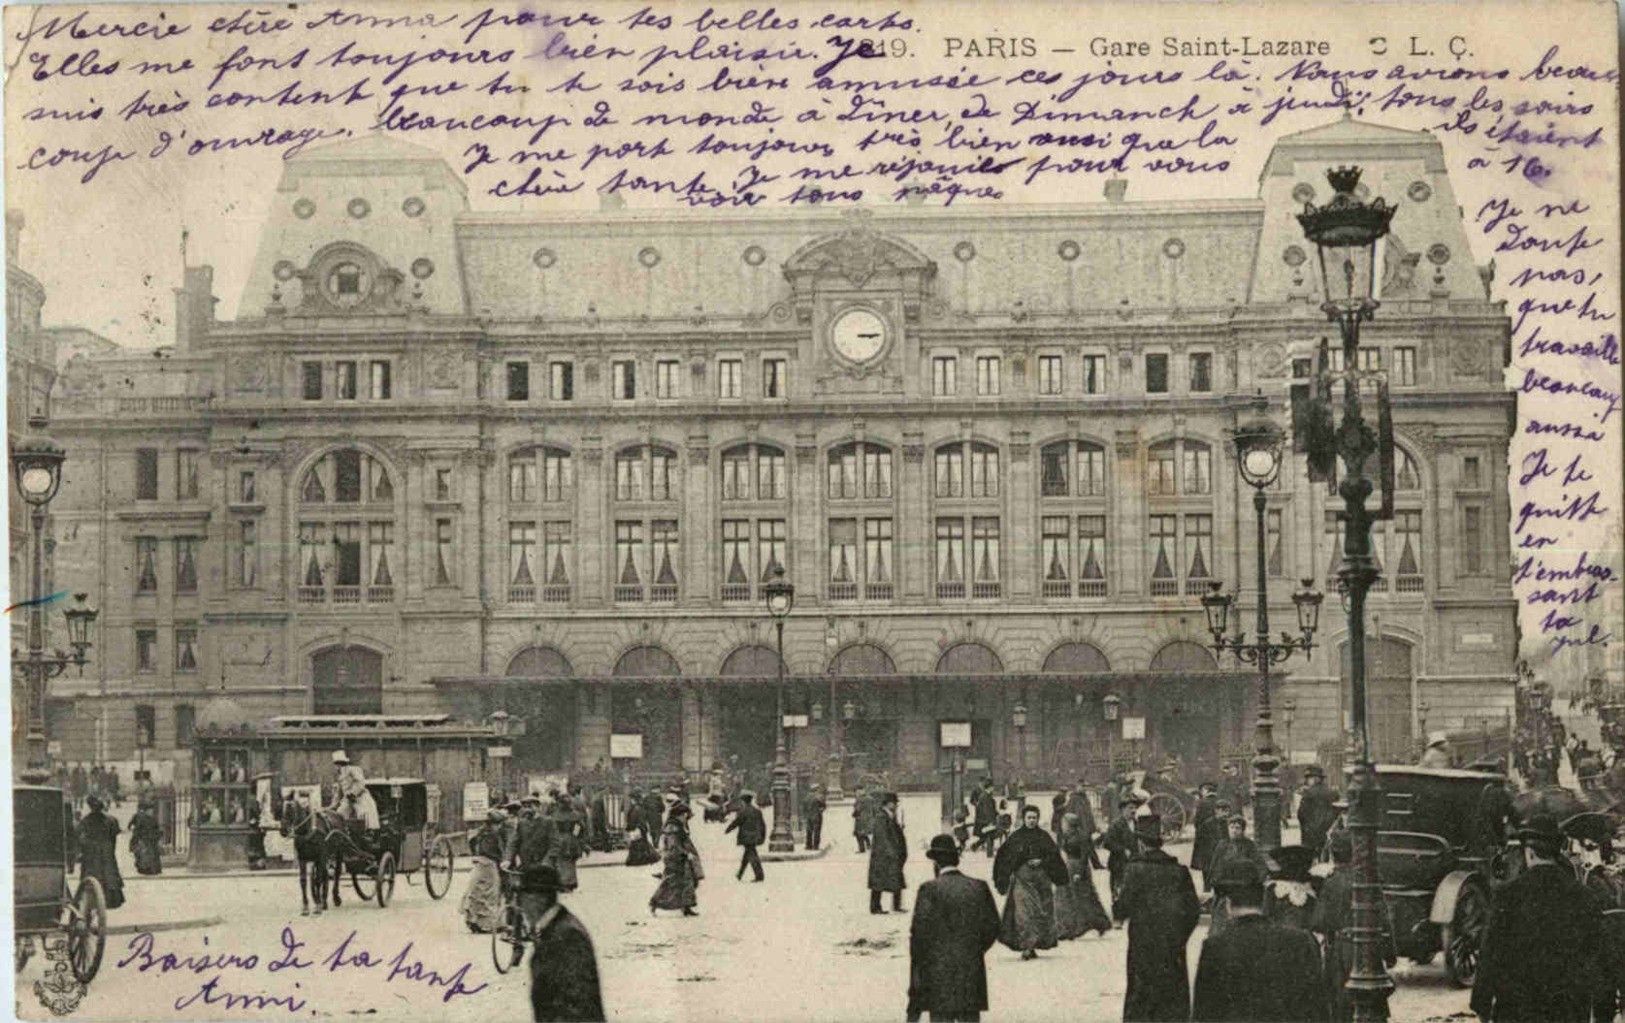 Mercie chère Anna pour tes belles carts.
Elles me font toujours bien plaisir. Je
suis très content que tu te sois bien amusée ces jours là. Nous avions beau-
coup d'ouvrage. beaucoup de monde à dîner, de Dimanch à jeudi; tous les soirs
ils étaient
à 16.
Je me port toujours très bien aussi que la
chère tante. Je me réjouis pour vous
voir tous pâques
219. PARIS — Gare Saint-Lazare C. L. C.
Je ne
doute
pas,
que tu
travaille
beaucoup
aussi
Je te
quitte
en
t'embras-
sant
ta
Baisers de ta tante
Anni.